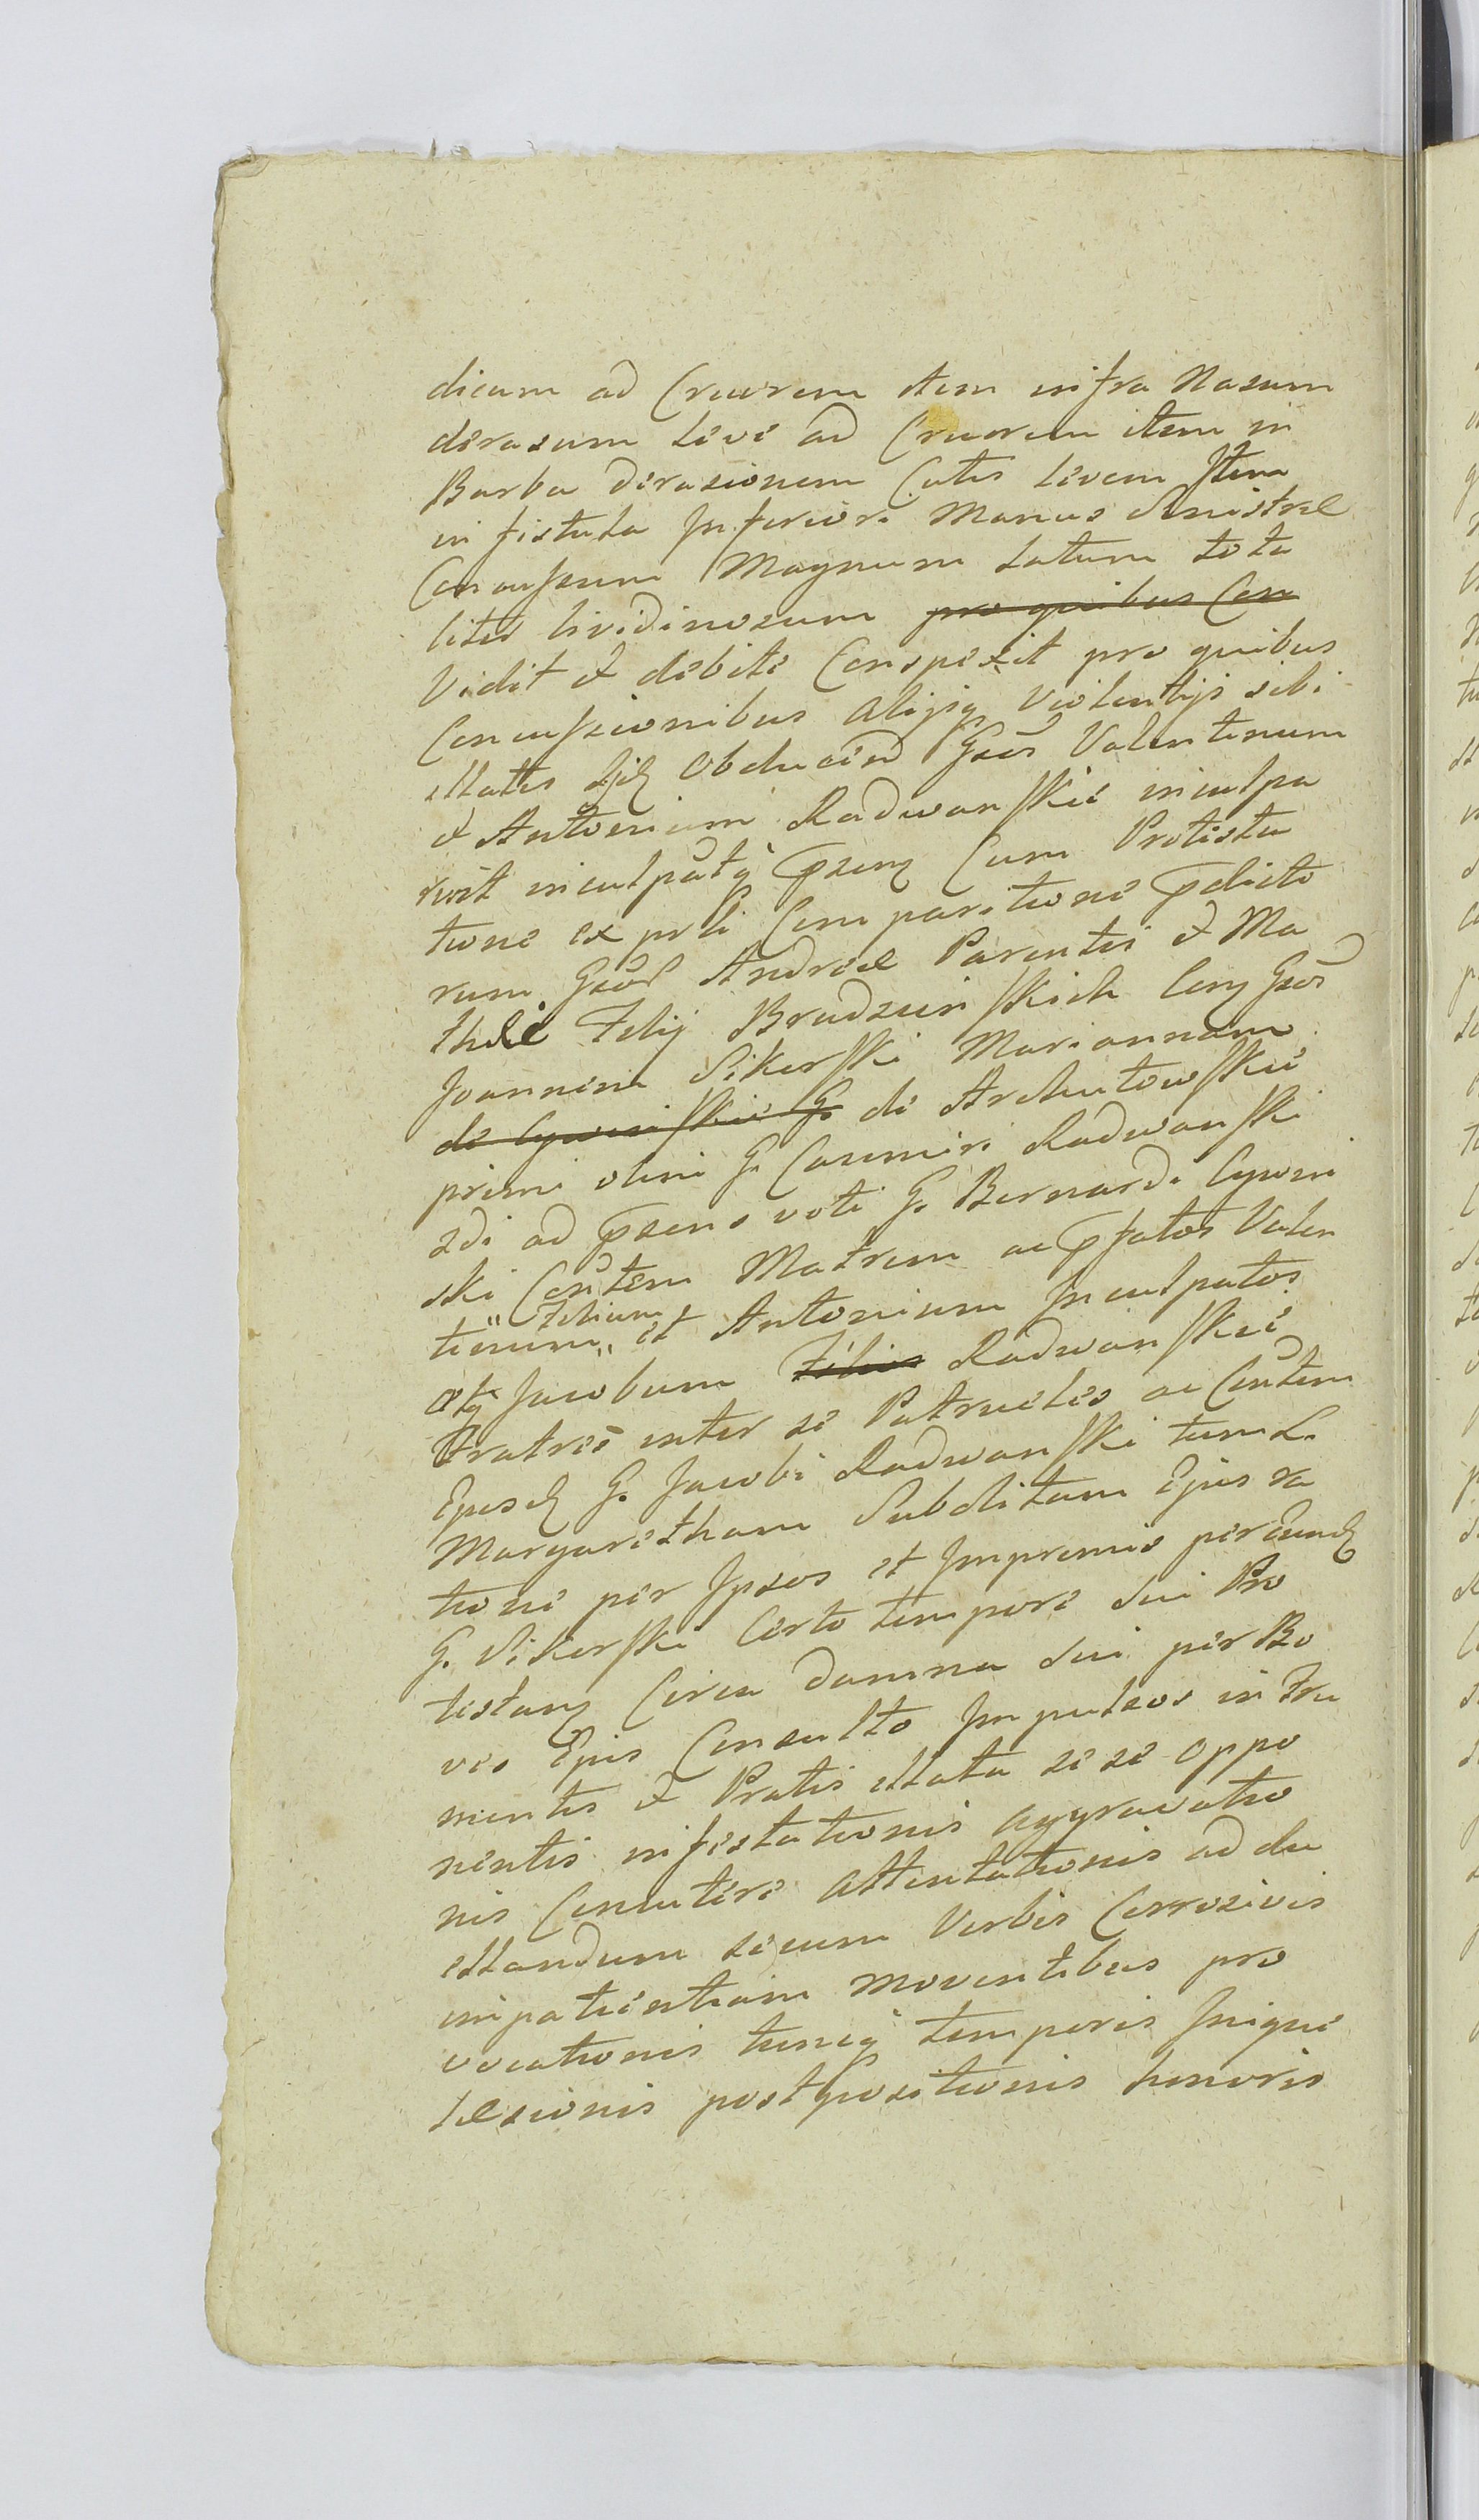 dicum ad Cruorem item infra Nasum
derasum Levi ad Cruorem item in
Barba derasionem Cutis Levem Item
in fistula Inferiori Manus Sinistræ
Concussum Magnum Latum tota
liter lividinosum pro quibus Con
Vidit et debite Conspexit pro quibus
Concussionibus Alijsq Violentijs sibi
illatis Gsos Valentinum
et Antonium Radwanskie inculpa
vit inculpatq pszens Cum Protesta
tione ex prti Comparitione pdicto
rum Gsor Andreæ Parentis et Ma
thæi Filij Brudzinskich Cong Gsos
Joannem Sikorski Mariannam
de Cywinskie G. de Archutowskie
primi olim G. Casimiri Radwanski
2di ad pszens voti G. Bernardi Cywin
ski Contem Matrem ac pfatos Valen
"Filium
tinum" et Antonium Inculpatos
atq Jacobum Filios Radwanskie
Fratres inter se Patrueles ac Contem
Ejusd G. Jacobi Radwanski tum L.
Margaretham Subditam Ejus ra
tione per Ipsos et Imprimis per Eund
G. Sikorski Certo tempore sui Pro
testans Circa damna sui per Bo
ves Ejus Consulto Impulsos in Fru
mentis et Pratis illata se se oppo
nentis infestationis aggravatio
nis Concutere attentationis ad du
ellandum secum Verbis Corrosivis
impatientiam moventibus pro
vocationis tuncq temporis Inique
læsionis postpositionis honoris